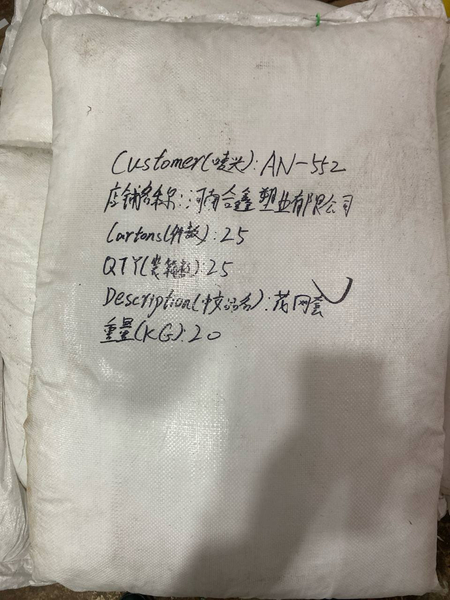 Customer(唛头): AN-552
店铺名称: 河南合鑫塑业有限公司
Cartons(件数): 25
QTY(装箱数): 25
Description(中文品名): 花网套
重量(KG): 20